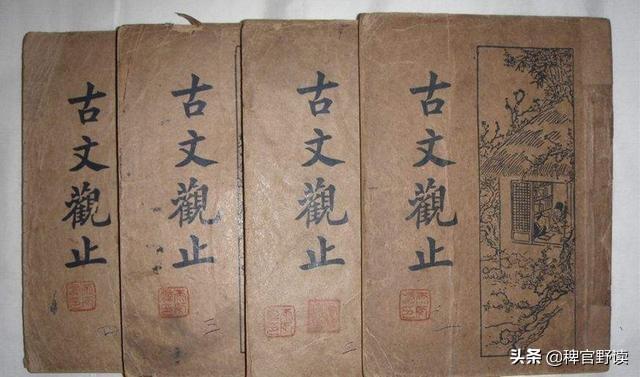 古文觀止
古文觀止
三
古文觀止
二
古文觀止
一
头条 @稗官野读